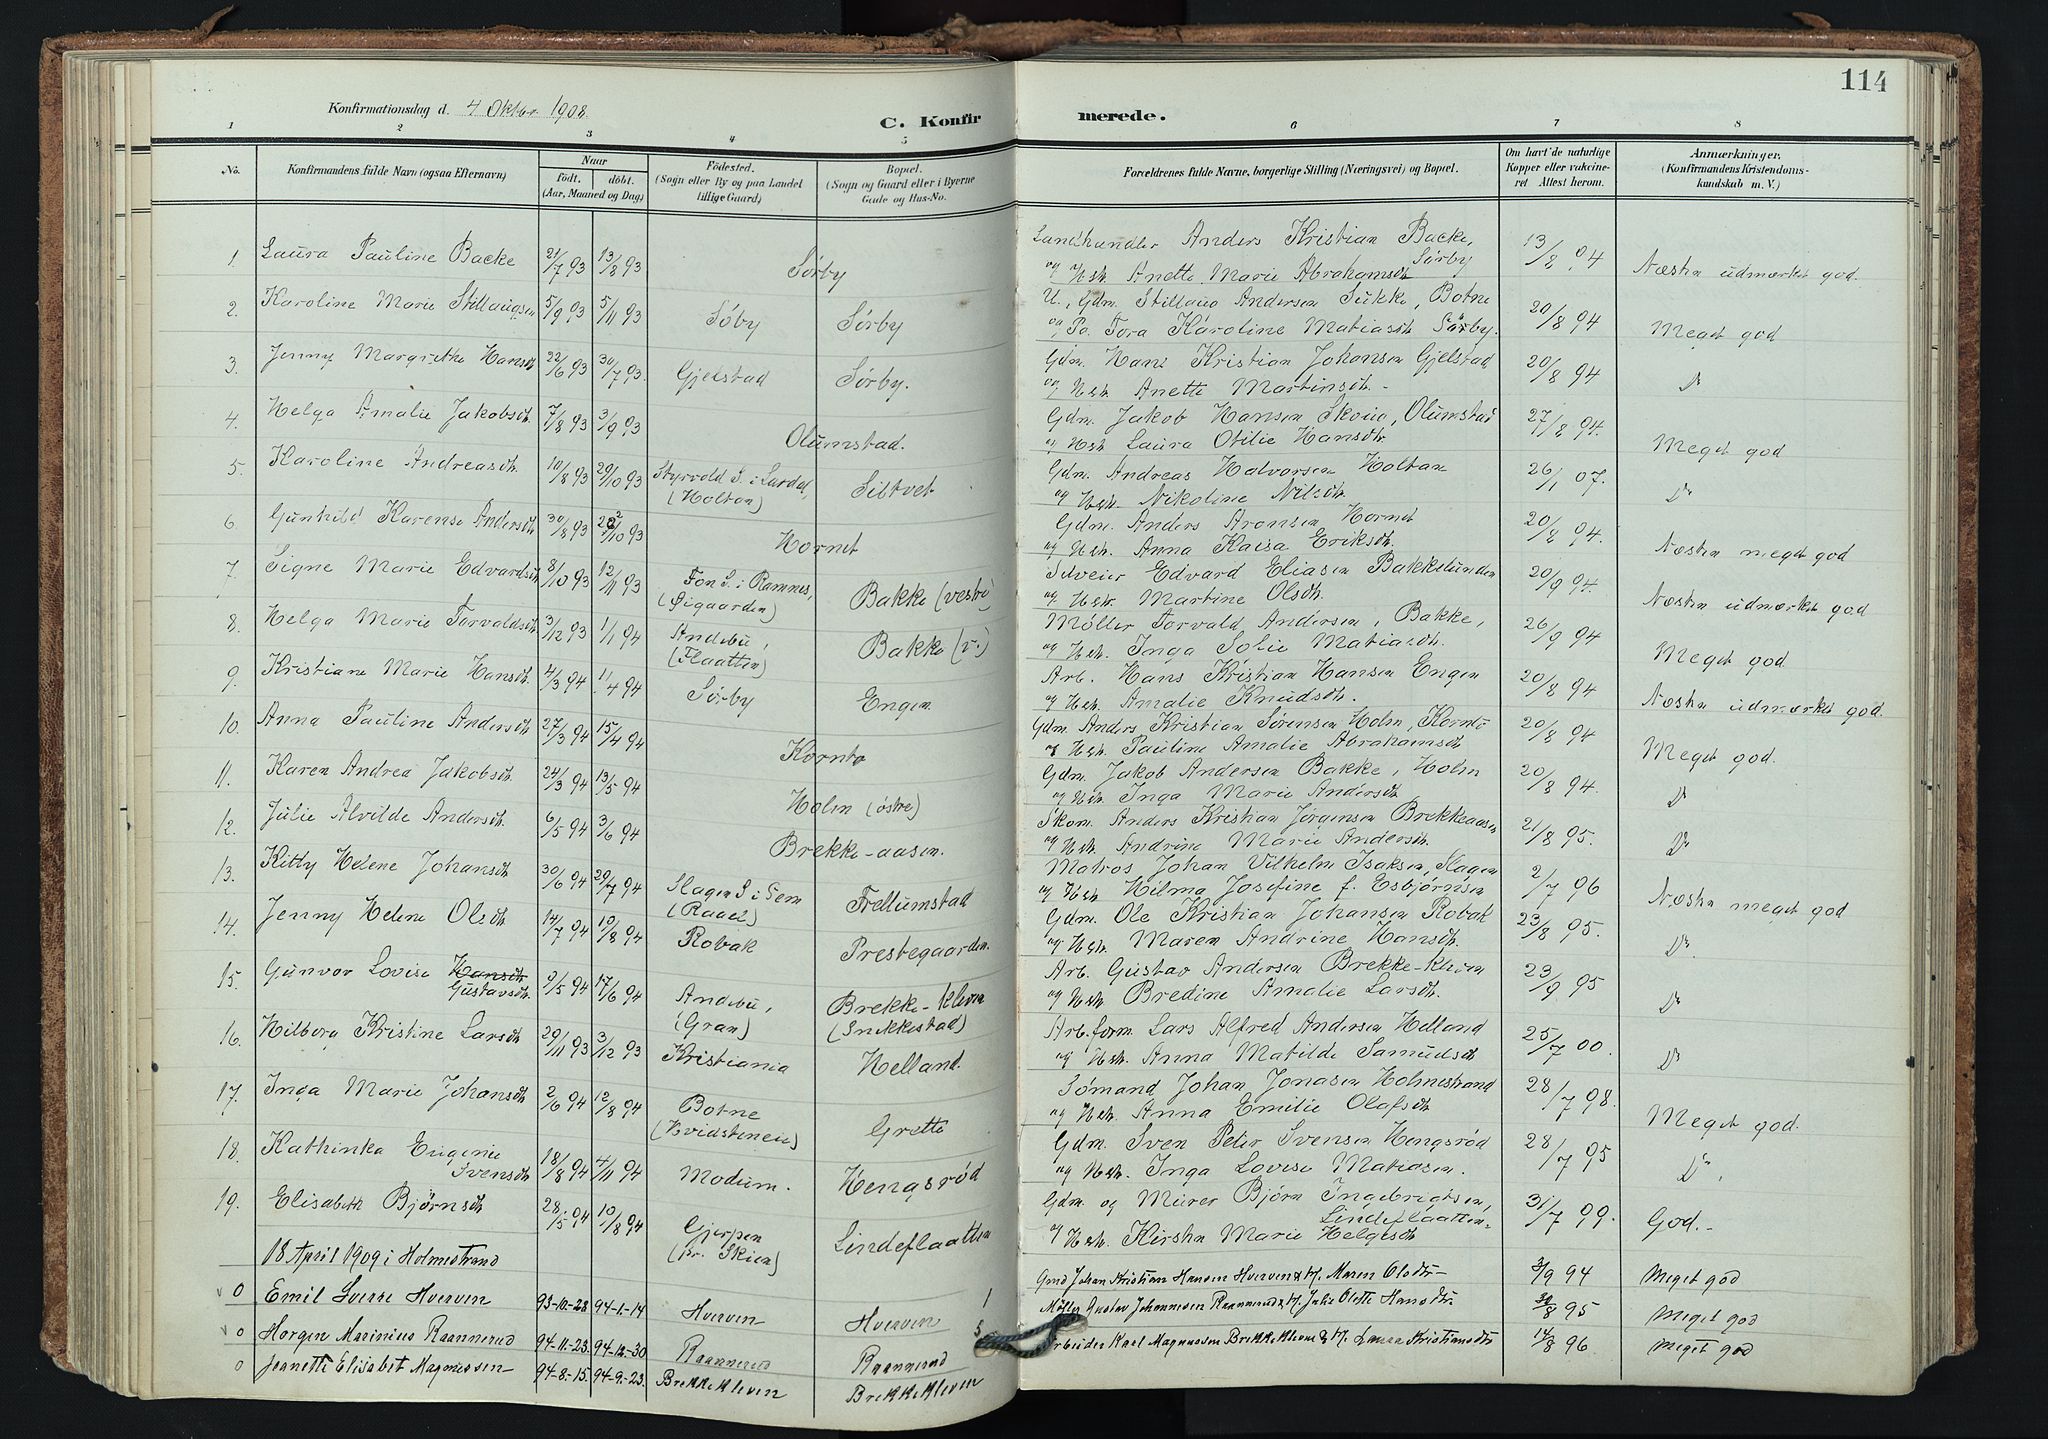 114
Konfirmationsdag d. 4 Oktbr 1908.
C. Konfirmerede.
1 2 3 4 5 6 7 8
No. Konfirmandens fulde Navn (ogsaa Efternavn) Naar födt. döbt. (Aar, Maaned og Dag) Födested. (Sogn eller By og paa Landet tillige Gaard) Bopæl. (Sogn og Gaard eller i Byerne Gade og Hus-No. Forældrenes fulde Navne, borgerlige Stilling (Næringsvei) og Bopæl. Om havt de naturlige Kopper eller vakcineret Attest herom. Anmærkninger. (Konfirmandens Kristendomskundskab m. V.)
1. Laura Pauline Backe 21/7 93 13/8 93 Sørby Landhandler Anders Kristian Backe, Sørby og Hstr. Anette Marie Abrahamsdtr 13/8 04 Næsten udmærket god.
2. Karoline Marie Stillaugsen 5/9 93 5/11 93 Søby Sørby U., Gdm. Stillaug Andersen Sukke, Botne og Pa. Tora Karoline Matiasdtr Sørby. 20/8 94 Meget god
3. Jenny Margrethe Hansdtr 22/6 93 30/7 93. Gjelstad Sørby. Gdm. Hans Kristian Johansen Gjelstad og Hstr. Anette Martinsdtr. 20/8 94 Do
4. Helga Amalie Jakobsdtr. 7/8 93 3/9 93 Olumstad. Gdm. Jakob Hansen Skoug, Olumstad og Hstr. Laura Otilie Hansdtr. 27/8 94. Meget god
5. Karoline Andreasdtr. 10/8 93 29/10 93 Styrvold S. i Lardal, (Holtan) Siltvet Gdm. Andreas Halvorsen Holtan og Hstr. Nikoline Nilsdtr. 26/1 07. Do
6. Gunhild Karense Andersdtr 30/8 93 22/10 93 Hornet Gdm. Anders Aronsen Hornet og Hstr. Anna Kaisa Eriksdtr. 20/8 94. Næsten meget god
7. Signe Marie Edvardsdtr 8/10 93 12/11 93 Fon S. i Ramnes, (Øigaarden) Bakke (vestre) Selveier Edvard Eliasen Bakkelunden og Hstr. Martine Olsdtr. 20/9 94. Næsten udmærket god
8. Helga Marie Torvaldsdtr 3/12 93 1/1 94 Andebu, (Flaatten) Bakke (v.) Møller Torvald Andersen, Bakke, og Hstr. Inga Sofie Matiasdtr. 26/9 94 Meget god
9. Kristiane Marie Hansdtr. 4/3 94 1/4 94 Sørby Engen Arb. Hans Kristian Hansen Engen og Hstr. Amalie Knudsdtr. 20/8 94 Næsten udmærket god.
10. Anna Pauline Andersdtr. 27/3 94 15/4 94 Kornbo Gdm. Anders Kristian Sørensen Holm, Kornbo og Hstr. Pauline Amalie Abrahamsdtr 20/8 94 Meget god.
11. Karen Andrea Jakobsdtr. 24/3 94 13/5 94 Holm (østre) Gdm. Jakob Andersen Bakke, Holm og Hstr. Inga Marie Andersdtr 20/8 94. Do
12. Julie Alvilde Andersdtr 6/5 94 3/6 94 Brekke-aasen. Skom. Anders Kristian Jørgensen Brekkeaasen og Hstr. Andrine Marie Andersdtr 21/8 95. Do
13. Kitty Helene Johansdtr 30/6 94 29/7 94 Slagen S i Sem (Raael) Frellumstad Matros Johan Vilhelm Isaksen, Slagen og Hstr. Hilma Josefine f. Esbjørnsen 2/7 96 Næsten meget god
14. Jenny Helene Olsdtr 14/7 94 19/8 94 Robak Prestegaarden. Gdm. Ole Kristian Johansen Robak og Hstr. Maren Andrine Hansdtr. 23/8 95. Do.
15. Gunvor Lovise Hansdtr Gustavsdtr. 2/5 94 17/6 94 Andebu, (Gran) Brekke-kleven (Snekkestad) Arb. Gustav Andersen Brekke-kleven og Hstr. Bredine Amalie Larsdtr. 23/9 95 Do
16. Hilborg Kristine Larsdtr 29/11 93 3/12 93 Kristiania Helland. Arb.form. Lars Alfred Andersen Helland og Hstr. Anna Matilde Samuelsdtr 25/7 00. Do
17. Inga Marie Johansdtr 2/6 94 12/8 94 Botne (Hvidstenene) Grette Sømand Johan Jonasen Holmestrand og Hstr. Anna Emilie Olafsdtr 28/7 98. Meget god.
18. Kathinka Eugenie Svensdtr 18/8 94 4/11 94 Modum. Hengsrød Gdm. Sven Peter Svensen Hengsrød og Hstr. Inga Lovise Matiasen. 28/7 95 Do.
19. Elisabeth Bjørnsdtr 28/5 94 10/8 94 Gjerpen (pr. Skien) Lindeflaatten Gdm. og Murer Bjørn Ingebrigtsen, Lindeflaatten. og Hstr. Kirsten Marie Helgesdtr 31/7 99. God.
18 April 1909 i Holmestrand
0 Emil Sverre Hverven 93-10-28 94-1-14 Hverven Hverven Gmd Johan Kristian Hansen Hverven & H. Maren Olsdtr 3/9 94 Meget god
0 Horgen Marinius Raannerud 94-11-23. 94-12-30 Raannerud Raannerud Møller Gustav Johannesen Raannerud & H. Julie Olette Hansdtr 8 95 Meget god
0 Jeanette Elisabet Magnussen 94-8-15. 94-9-23. Brekkekleven Brekkekleven Arbeider Karl Magnussen Brekkekleven & H. Laura Kristiansdtr 14/8 96 Meget god